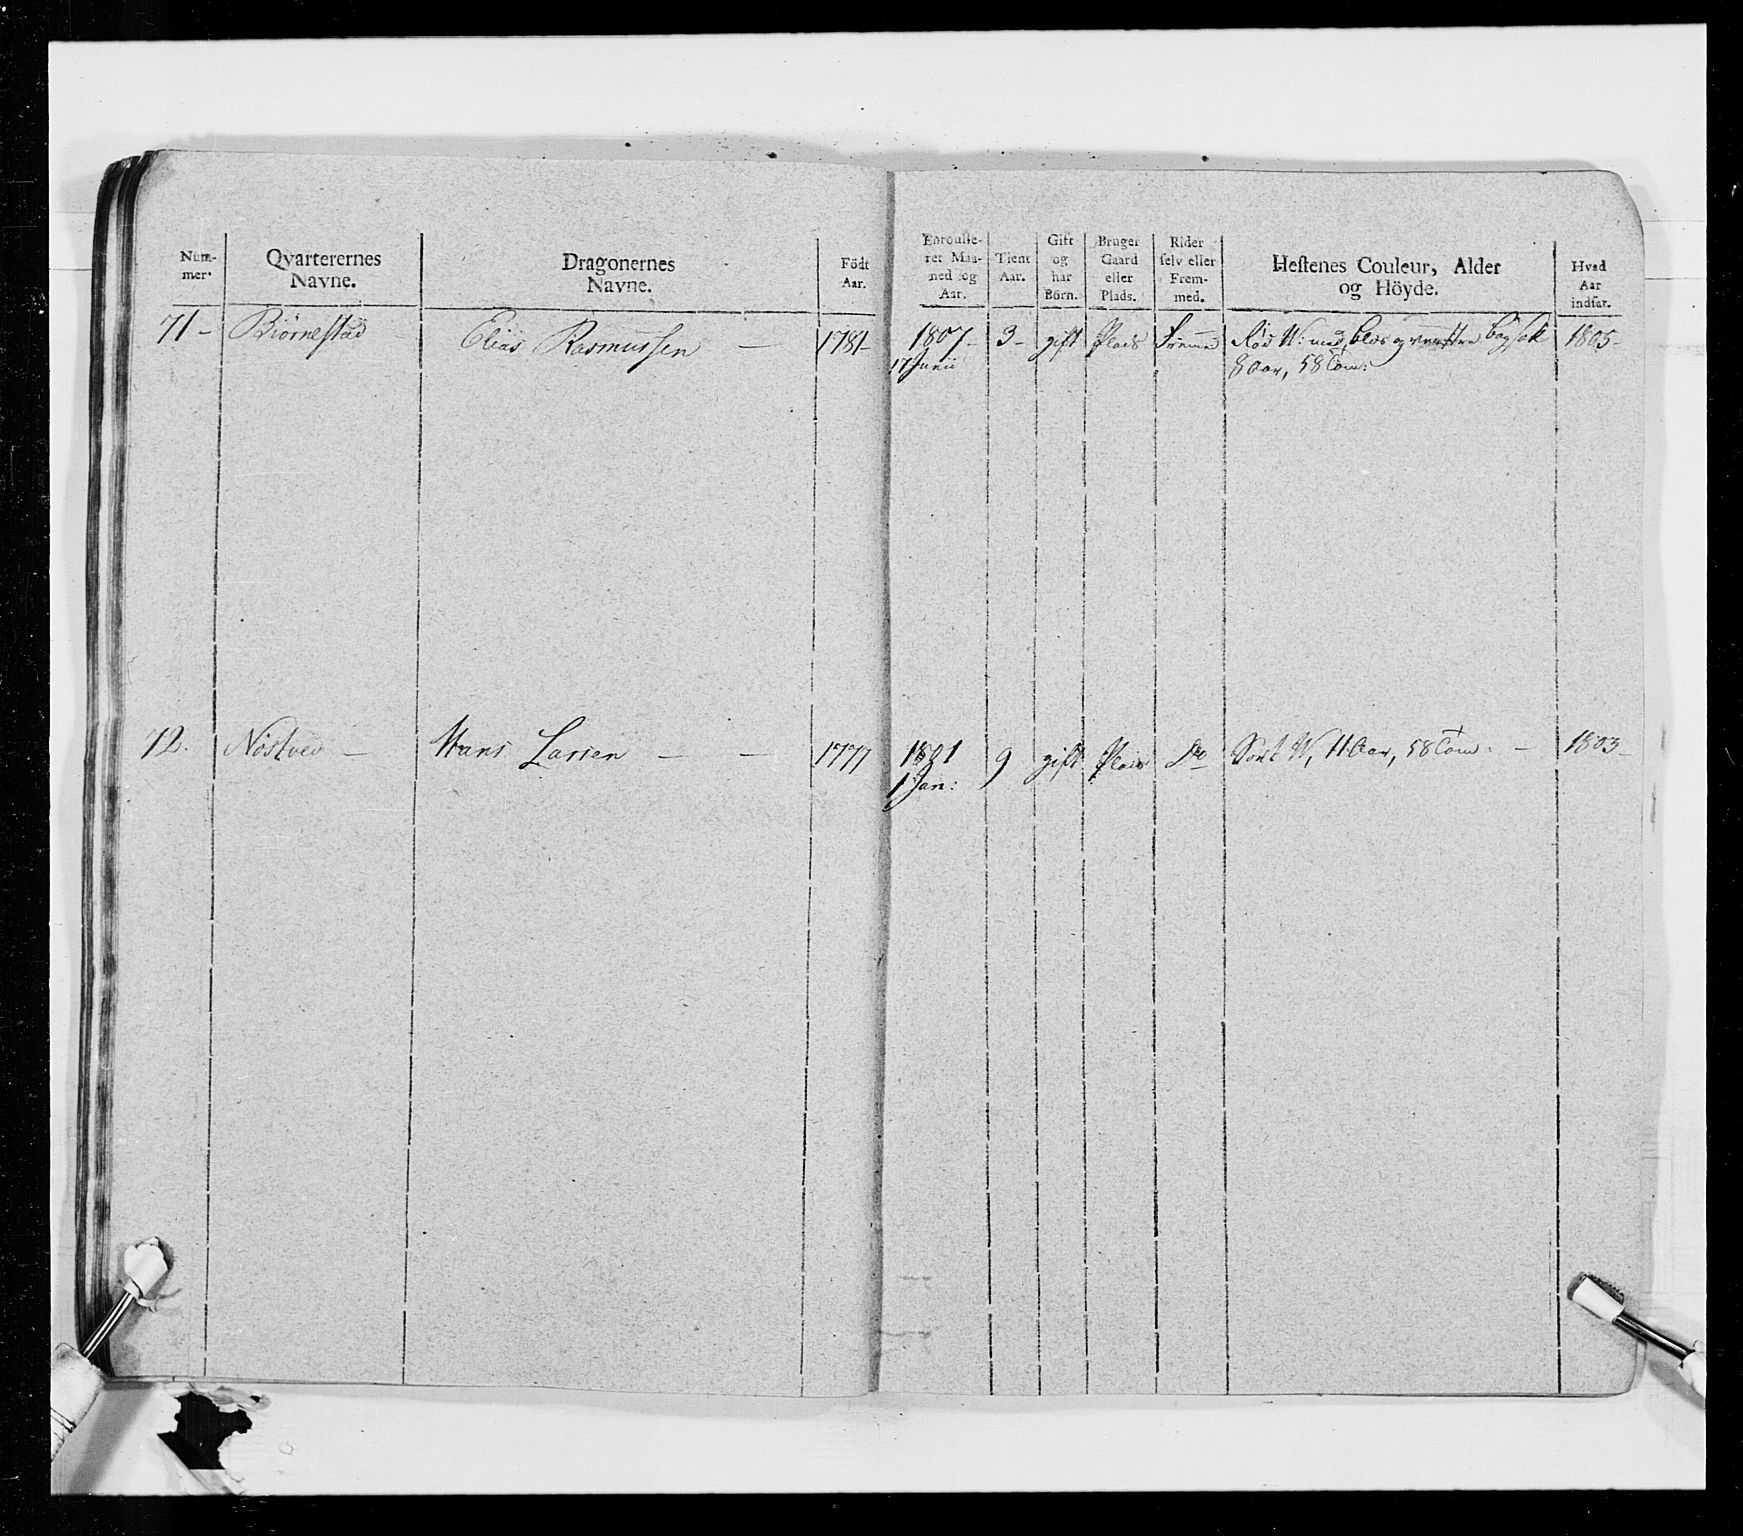 Num-
mer.
Qvarterernes
Navne.
Dragonernes
Navne.
Födt
Aar.
Enroulle-
ret Maa-
ned og
Aar.
Tient
Aar.
Gift
og
har
Börn.
Bruger
Gaard
eller
Plads.
Rider
selv eller
Frem-
med.
Hestenes Couleur, Alder
og Höyde.
Hvad
Aar
indsat.
71 - Biörnestad - Elias Rasmussen - 1781 - 1807 - 3 - gift Plads Fremed Röd W: med blis og venstre bagsok 1805 -
17 Junii 8 Aar, 58 Tom:
72. Nöstved - Hans Larsen - - 1777 1801 9 gift Plads do Sort W, 11 Aar, 58 Tom: - 1803
1 Jan: